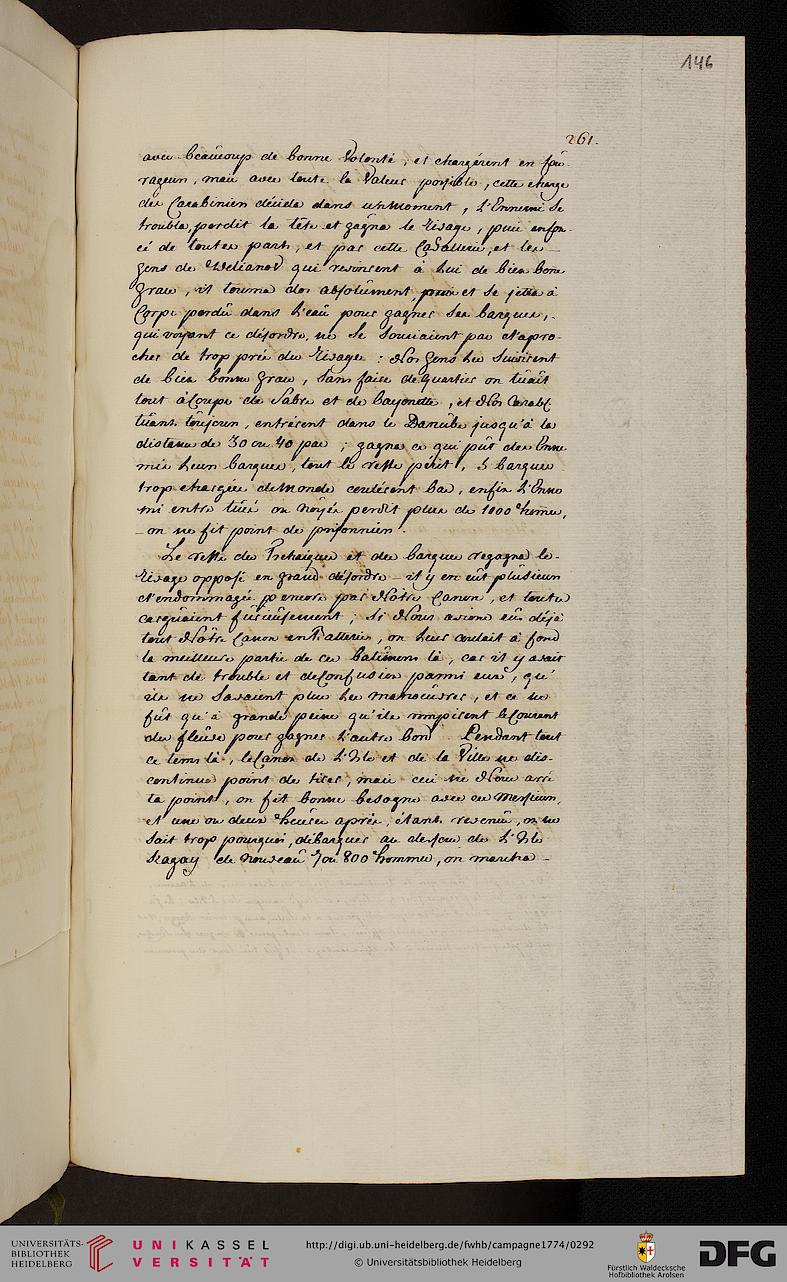 146
261.
avec beaucoup de bonne Volonté, et chargérent en fou-
rageurs, mais avec toute la Valeur possible, cette charge
des Carabiniers décida dans un Moment, L'Ennemi Se
troubla, perdit la tête et gagna le Rivage, puis enfon-
cé de toutes parts, et par cette Cavallerie, et les
gens de Welianow qui revinrent à Lui de bien bone
grace, il tourna dos absolument, et Se jetta à
Corps perdû dans L'eaû pour gagner Ses barques,
qui voyant ce désordre, ne Se Souciaient pas d'apro-
cher de trop près du Rivage : Nos gens Les Suivirent
de bien bonne grace, Sans faire de quartier on tûait
tout à Coups de Sabre et de bayonette, et Nos Carabl:
tûans toûjours, entrérent dans le Danûbe jusqu'à la
distance de 30 ou 40 pas ; gagna ce qui pût des Enne
mis Leurs barques, tout le reste périt, 3 barques
trop chargées de Monde coulérent bas, enfin L'Enne
mi entre tûés ou Noyés perdit plus de 1000 hommes,
on ne fit point de prisonniers.
Le reste des Tschaiques et des barques regagna le
Rivage opposé en grand désordre - il y en eût plûsieurs
d'endommagées encore par Nôtre Canon, et toutes
carguaient fûrieûsement ; Si Nous avions eûs déjà
tout Nôtre Canon en batterie, on Leur coulait à fond
la meilleure partie de ces batimens là, car il y avait
tant de trouble et de Confusion parmi eux, qu'
ils ne Savaient plus Les manoeûvres, et ce ne
fût qu'à grande peine qu'ils rompirent le Courant
du fleûve pour gagner L'autre bord. Pendant tout
ce tems là, le Canon de L'Isle et de la Ville ne dis-
continua point de tirer, mais ceci ne Nous arrê
ta point, on fit bonne besogne avec ces Messieurs,
et une ou deux heûres après, étant revenûs, on ne
Sait trop pourquoi, débarquer au dessous de L'Isle
de Nouveaû 7 ou 800 hommes, on marcha -
UNIVERSITÄTS-
BIBLIOTHEK
HEIDELBERG
UNIKASSEL
VERSITÄT
http://digi.ub.uni-heidelberg.de/fwhb/campagne1774/0292
© Universitätsbibliothek Heidelberg
Fürstlich Waldecksche
Hofbibliothek Arolsen
DFG